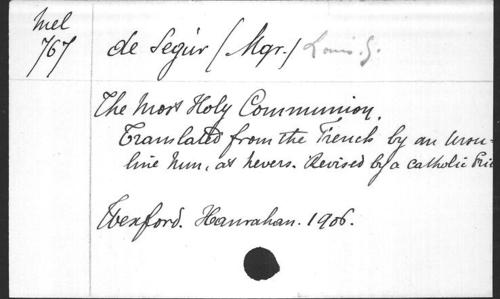 Mel
767
de Segur (Mgr.) Louis. G.
The Most Holy Communion.
Translated from the French by an Ursu-
line Nun, at Nevers. Revised by a Catholic Prie
Wexford. Hanrahan. 1906.